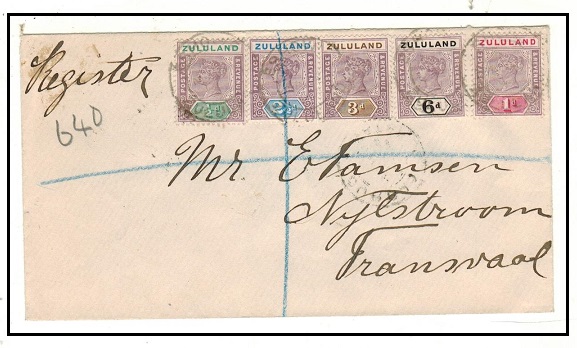 ZULULAND ZULULAND ZULULAND ZULULAND ZULULAND
POSTAGE REVENUE POSTAGE REVENUE POSTAGE REVENUE POSTAGE REVENUE POSTAGE REVENUE
½d 2½d 3d 6d 1d
Register
640
Mr. E Tamsen
Nylstroom
Transvaal